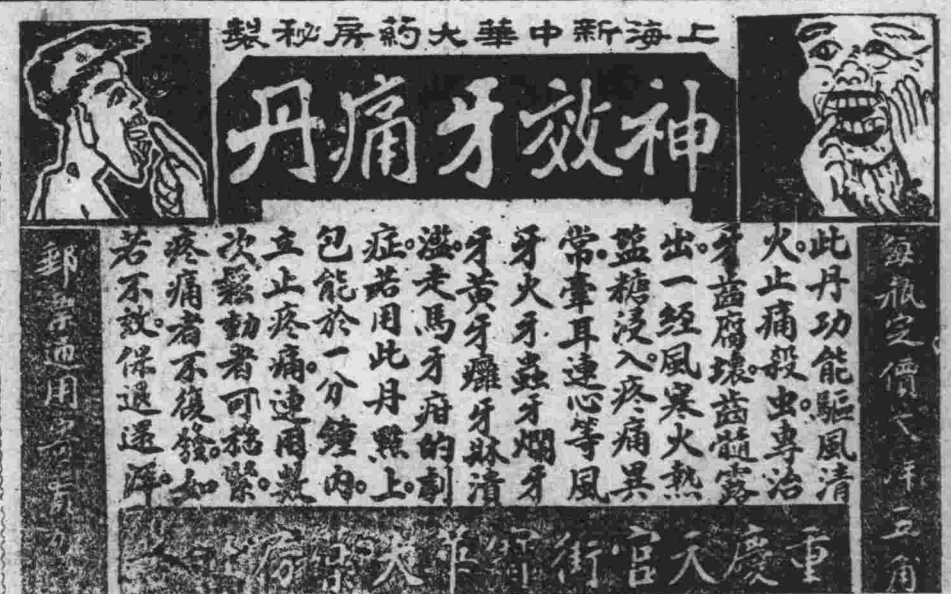 上海新中華大药房秘製
神效牙痛丹
每瓶定價大洋五角
此丹功能驅風清
火止痛殺虫。專治
牙齒腐壞。齒髓露
出。一經風寒火熱
籃糖浸入。疼痛異
常。牽耳連心等風
牙火牙蟲牙爛牙
牙黃牙癰牙牀潰
濫。走馬牙疳的劇
症。若用此丹點上。
包能於一分鐘內。
立止疼痛。連用數
次鬆動者可穩緊。
疼痛者不復發。如
若不效。保退還洋。
郵票通用寄費
重慶天官街華大药房